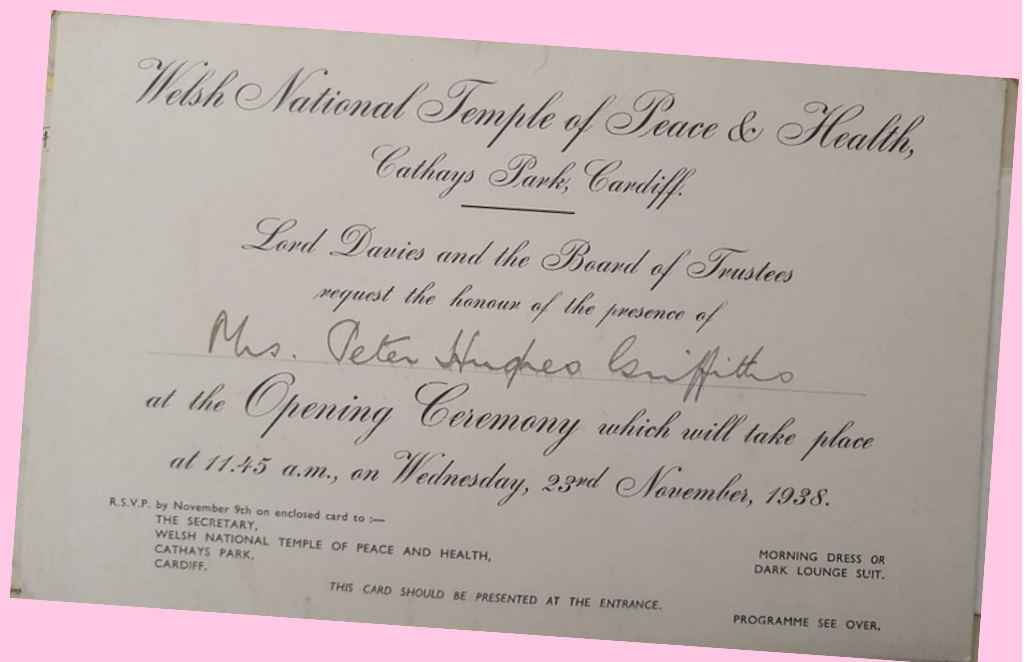 Welsh National Temple of Peace & Health,
Cathays Park, Cardiff.
Lord Davies and the Board of Trustees
request the honour of the presence of
Mrs. Peter Hughes Griffiths
at the Opening Ceremony which will take place
at 11.45 a.m., on Wednesday, 23rd November, 1938.
R.S.V.P. by November 9th on enclosed card to :—
THE SECRETARY,
WELSH NATIONAL TEMPLE OF PEACE AND HEALTH,
CATHAYS PARK,
CARDIFF.
MORNING DRESS OR
DARK LOUNGE SUIT.
THIS CARD SHOULD BE PRESENTED AT THE ENTRANCE.
PROGRAMME SEE OVER.